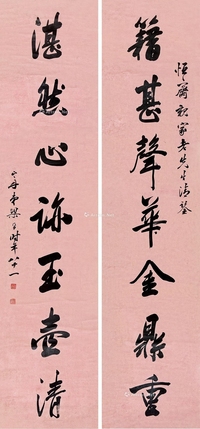 恒齋親家老先生清鑒
籍甚聲華金鼎重
湛然心跡玉壺清
山舟弟梁同書時年八十一